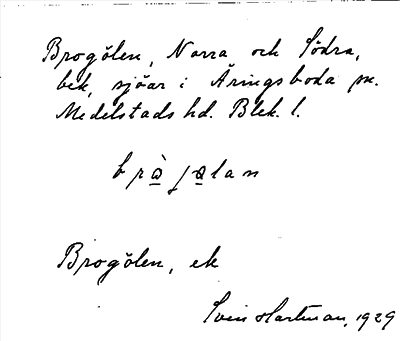 Brogölen, Norra och Södra,
bek, sjöar i Äringsboda sn.
Medelstads hd. Blek. l.
brò̱ jø̱lan
Brogölen, ek
Sven Hartman, 1929